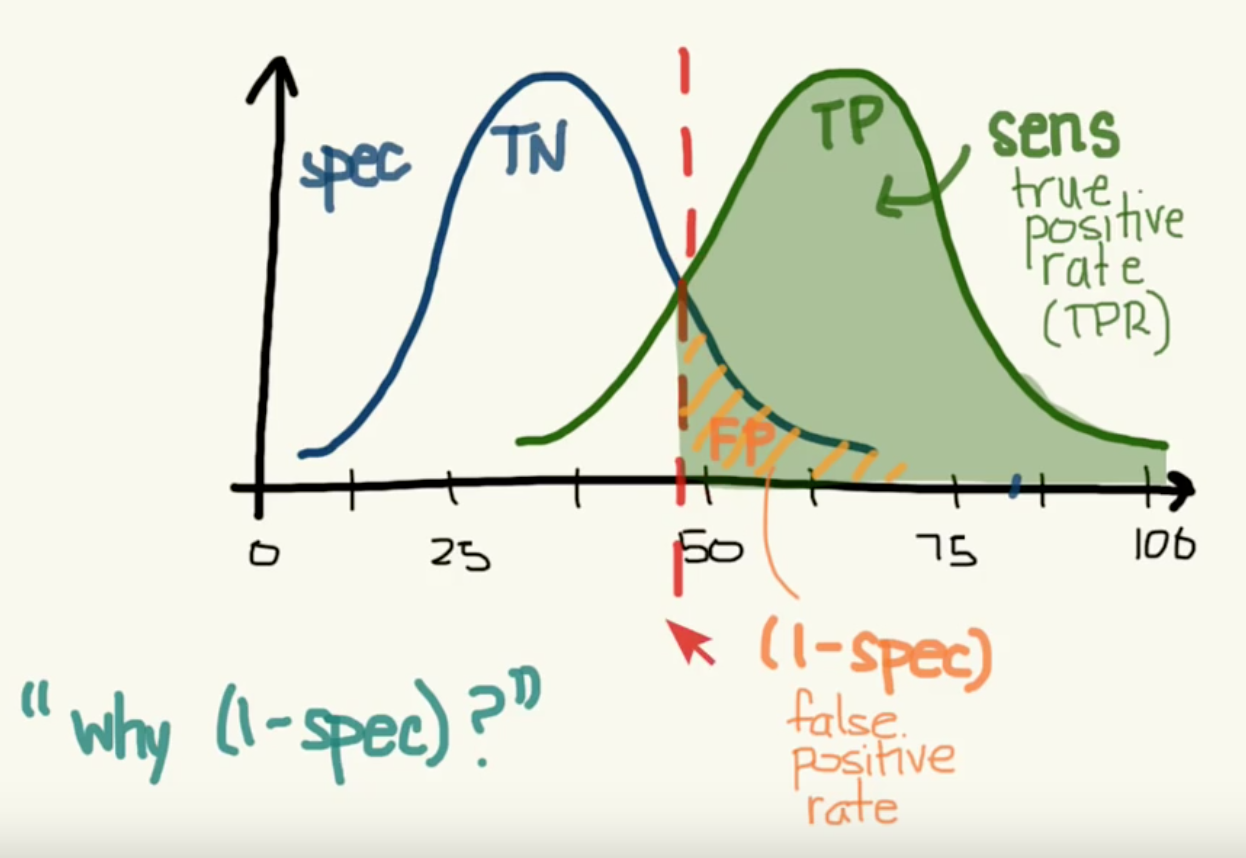 spec
TN
TP
sens
true
positive
rate
(TPR)
FP
0
25
50
75
100
(1-spec)
false
positive
rate
"why (1-spec)?"